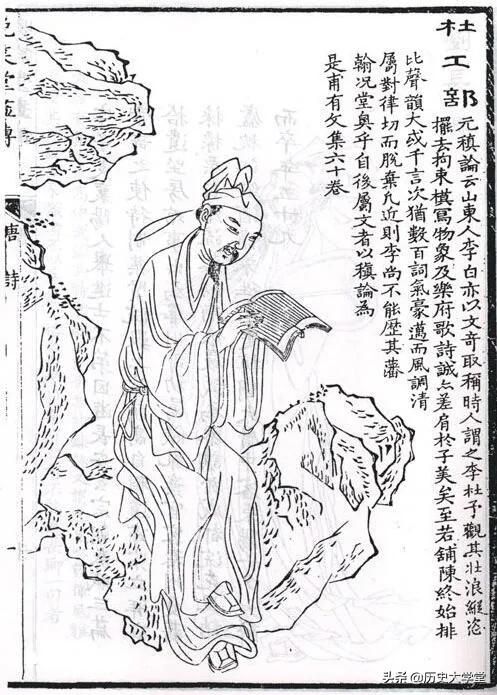 杜工部
元稹論云山東人李白亦以文奇取稱時人謂之李杜予觀其壯浪縱恣
擺去拘束模寫物象及樂府歌詩誠亦差肩於子美矣至若鋪陳終始排
比聲韻大成千言次猶數百詞氣豪邁而風調清
屬對律切而脫棄凡近則李尚不能歷其藩
翰况堂奧乎自後屬文者以稹論為
是甫有文集六十卷
笑堂畫傳
唐詩
一
头条 @历史大学堂